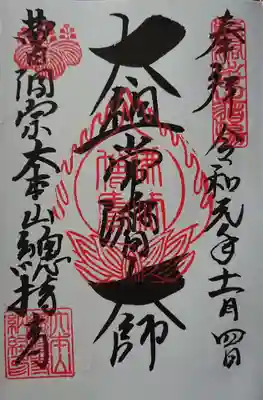 奉拝 令和元年十一月四日
太祖常濟大師
曹洞宗大本山總持寺